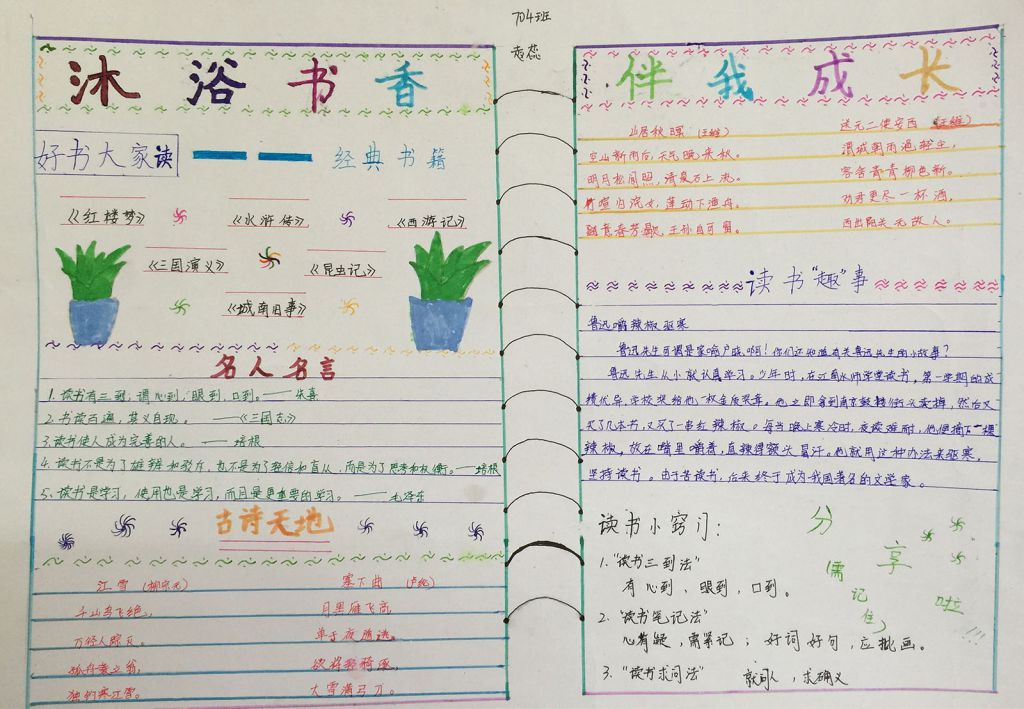 704班
沐浴书香
伴我成长
好书大家读
经典书籍
《红楼梦》
《水浒传》
《西游记》
《三国演义》
《昆虫记》
《城南旧事》
名人名言
1. 读书有三到,谓心到,眼到,口到。——朱熹
2. 书读百遍,其义自现。——《三国志》
3. 读书使人成为完善的人。——培根
4. 读书不是为了雄辩和驳斥,也不是为了轻信和盲从,而是为了思考和权衡。——培根
5. 读书是学习,使用也是学习,而且是更重要的学习。——毛泽东
古诗天地
江雪 (柳宗元)
千山鸟飞绝,
万径人踪灭。
孤舟蓑立翁,
独钓寒江雪。
塞下曲 (卢纶)
月黑雁飞高,
单于夜遁逃。
欲将轻骑逐,
大雪满弓刀。
山居秋暝 (王维)
空山新雨后,天气晚来秋。
明月松间照,清泉石上流。
竹喧归浣女,莲动下渔舟。
随意春芳歇,王孙自可留。
送元二使安西 (王维)
渭城朝雨浥轻尘,
客舍青青柳色新。
劝君更尽一杯酒,
西出阳关无故人。
读书“趣”事
鲁迅嚼辣椒驱寒
鲁迅先生可谓是家喻户晓啊!你们还知道有关鲁迅先生的小故事?
鲁迅先生从小就认真学习。少年时,在江南水师学堂读书,第一学期的成
绩优异,学校奖给他一枚金质奖章。他立即拿到南京鼓楼街头卖掉,然后又
买了几本书,又买了一串红辣椒。每当晚上寒冷时,夜读难耐,他便摘下一颗
辣椒,放在嘴里嚼着,直辣得额头冒汗。他就用这种办法来驱寒,
坚持读书。由于苦读书,后来终于成为我国著名的文学家。
读书小窍门:
1. “读书三到法”
有心到、眼到,口到。
2. “读书笔记法”
心有疑,需紧记;好词好句,应批画。
3. “读书求问法” 就问人,求确义
分享
需记住,
啦!!!